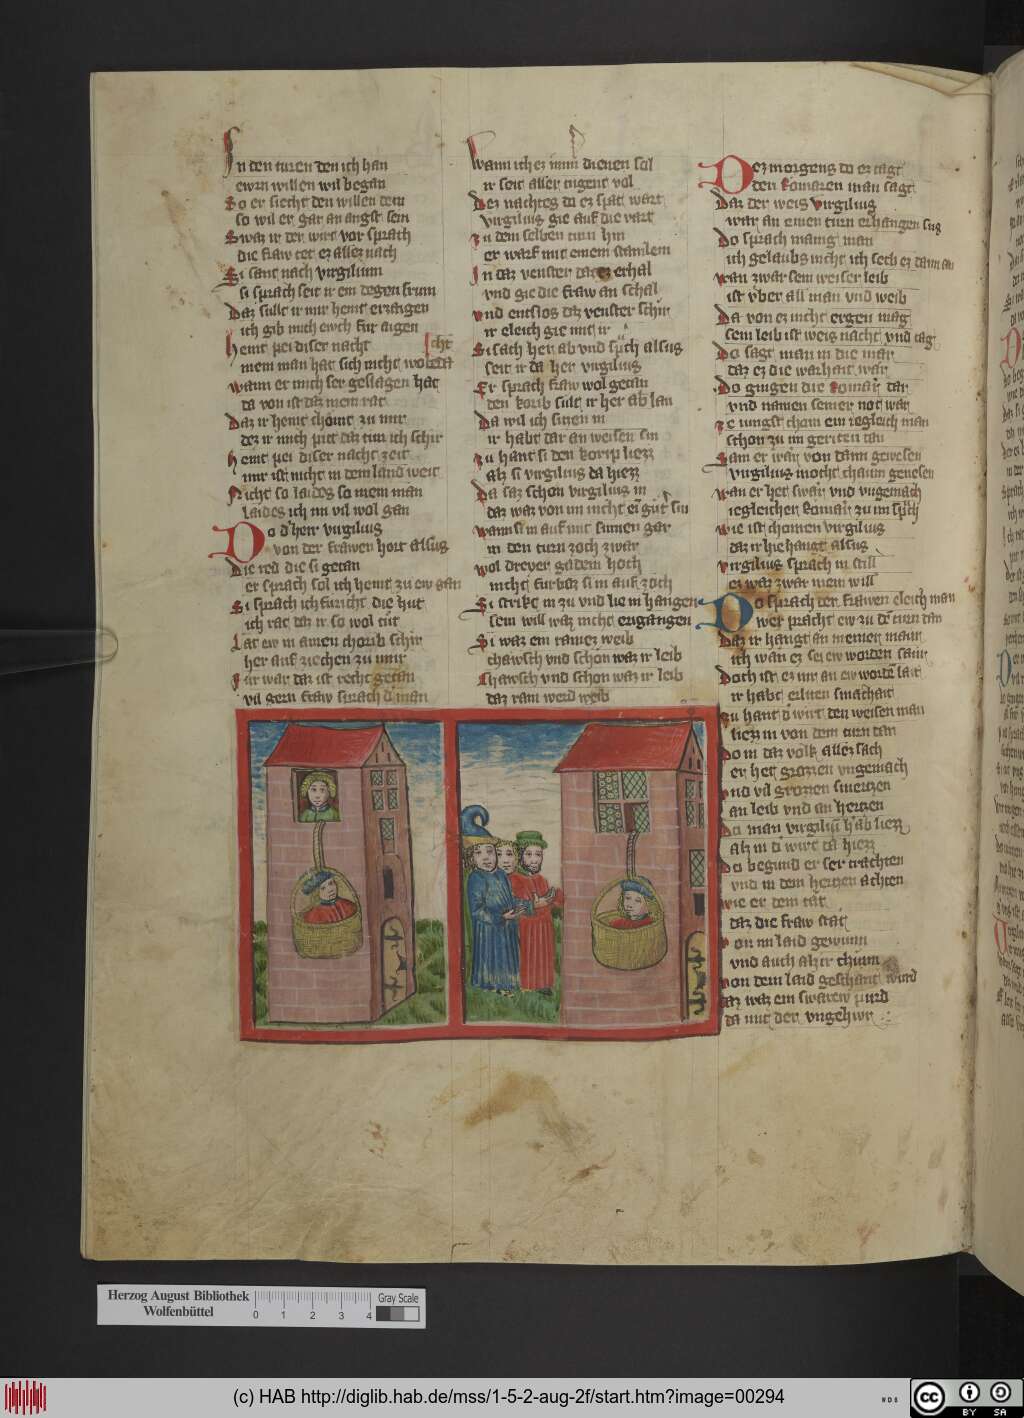 In den turen den ich han
ewrn willen wil began
So er siecht den willen dein
so wil er gar an angst sein
Swaz ir der wirt vor sprach
die fraw tet ez allez nach
Si sant nach virgilium
si sprach seit ir ein degen frum
Daz sullt ir mir heint erzaigen
ich gib mich ewch fur aigen
heint pei diser nacht
mein man hat sich nicht wol bedacht
wann er mich ser geslagen hat
da von ist daz mein rat
Daz ir heint choint zu mir
dez ir mich piet daz tun ich schir
heint pei diser nacht zeit
mir ist nicht in dem land weit
Nicht so laides so mein man
laides ich im vil wol gan
Do d herr virgilius
von der frawen hort alsus
Die red die si getan
er sprach sol ich heint zu ew gan
Si sprach ich furicht die hut
ich rat daz ir so wol tut
Lat ew in ainen chorib schir
her auf ziechen zu mir
Fur war daz ist recht getan
vil gern fraw sprach d man
wann ich ez immer dienen sol
ir seit aller tugent vol
Dez nachtes do ez spat wart
virgilius gie auf die vart
zu dem selben turn hin
er warf mit einem stainlein
In daz venster daz ez erhal
vnd gie die fraw an schal
vnd entslos daz venster schir
ir eleich gie mit ir
Si sach her ab vnd sprach alsus
seit ir da her virgilius
Er sprach fraw wol getan
den korib sult ir her ab lan
Da wil ich sitzen in
ir habt dar an weisen sin
zu hant si den korip liezz
alz si virgilius da hiezz
Da saz schon virgilius in
daz waz von im nicht ei gut sin
wann si in auf mit sinnen gar
in den turn zoch zwar
wol dreyer gadem hoch
nicht furbaz si in auf zoch
Si strikt in zu vnd lie in hangen
sein will waz nicht ergangen
Si waz ein rainez weib
chawsch vnd schon waz ir leib
Chawsch vnd schon waz ir leib
daz rain werd weib
Dez morgens do ez tagt
den Romaren man sagt
Daz der weis virgilius
war an einen turn erhangen sus
Do sprach manig man
ich gelaubs nicht ich sech ez dann an
wan zwar sein weiser leib
ist vber all man vnd weib
Da von ez nicht ergen mag
sein leib ist weis nacht vnd tag
Do sagt man in die mar
daz ez die warhait war
Do gingen die Romar dar
vnd namen seiner not war
ze iungst chom ein iegleich man
schon zu im geriten dan
Sam er war von dann gewesen
virgilius mocht chaum genesen
wan er het swar vnd vngemach
iegleicher Romar zu im sprach
wie ist chomen virgilius
daz ir hie hangt alsus
virgilius sprach in still
ez waz zwar mein will
Do sprach der frawen eleich man
wer pracht ew zu dem turn dan
Daz ir hangt an meiner maur
ich wan ez sei ew worden saur
Doch ist ez mir an ew worden lait
ir habt erliten smachait
zu hant d wirt den weisen man
liezz in von dem turn dan
Do in daz volk allez sach
er het grozzen vngemach
vnd vil grozzen smertzen
an leib vnd an hertzen
Do man virgilium hab liezz
alz in d wirt da hiezz
Do begund er ser trachten
vnd in dem hertzen achten
wie er dem tat
daz die fraw stat
von im laid gewunn
vnd auch alz er chunn
von dem laid geschant wurd
daz waz ein swarew purd
da mit der vngehwr
Herzog August Bibliothek
Wolfenbüttel
0 1 2 3 4
Gray Scale
(c) HAB http://diglib.hab.de/mss/1-5-2-aug-2f/start.htm?image=00294
WDB
cc
BY SA